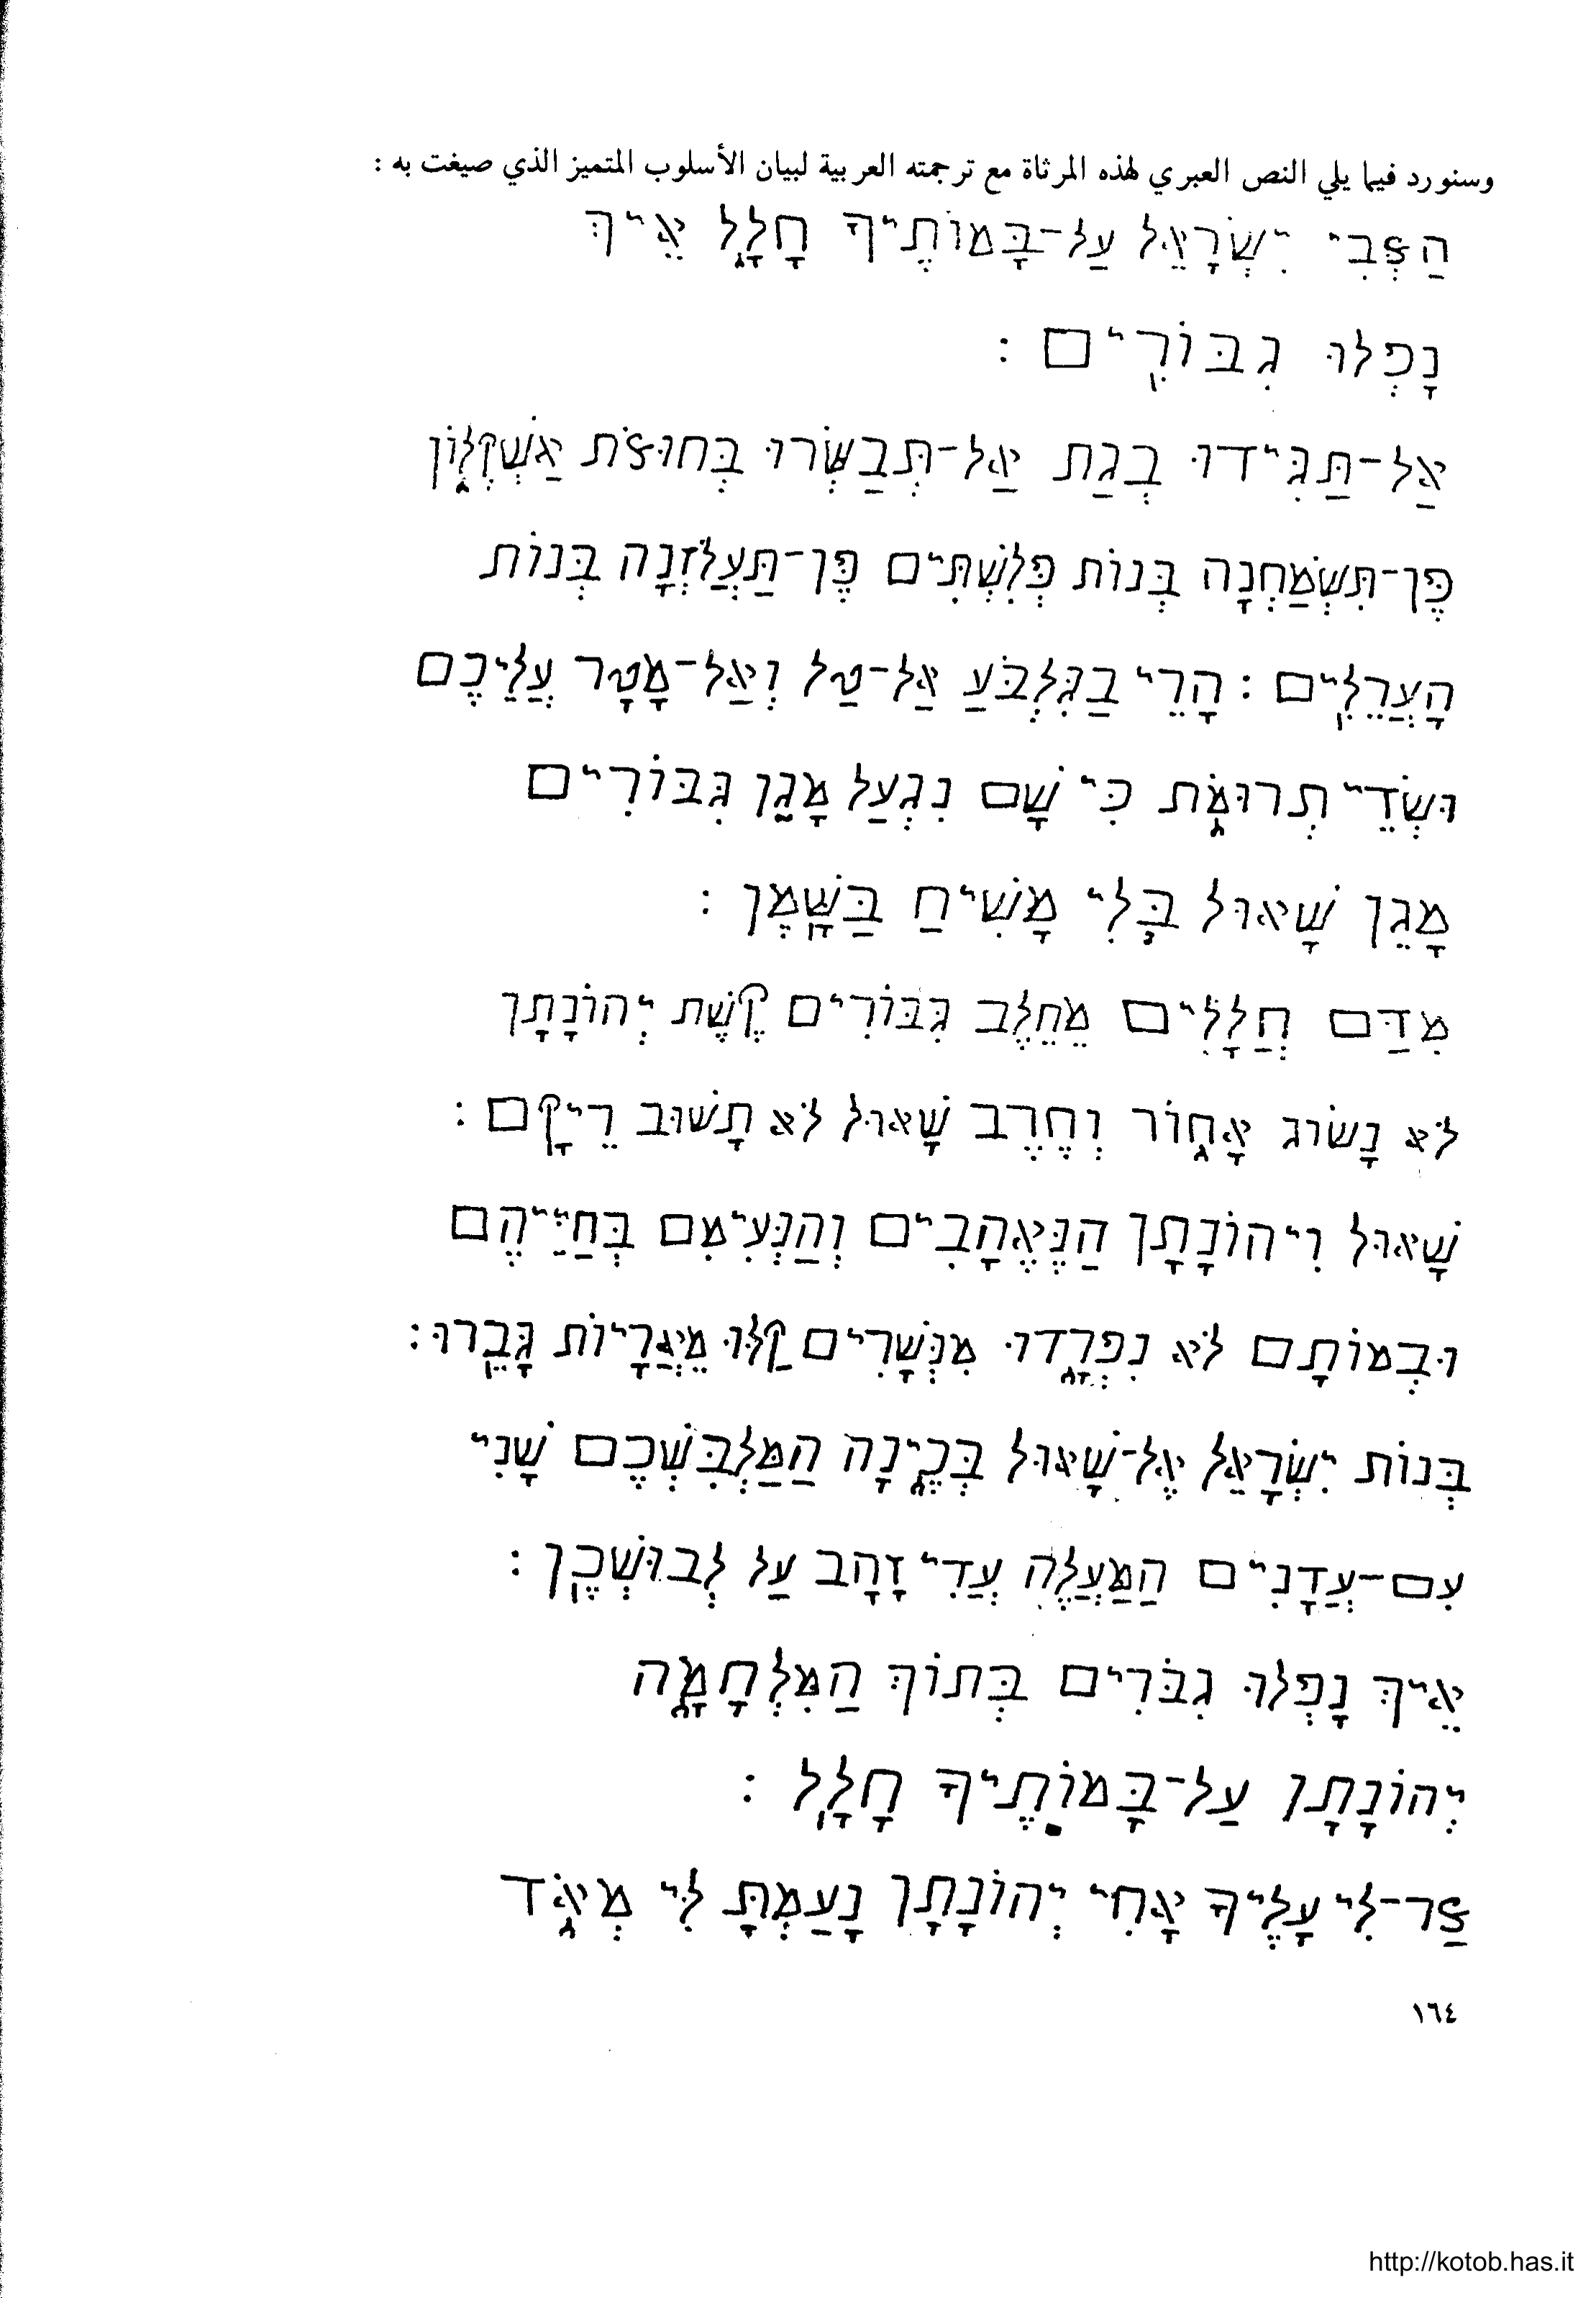 وسنورد فيما يلي النص العبري لهذه المرثاة مع ترجمته العربية لبيان الأسلوب المتميز الذي صيغت به :
הַצְּבִי יִשְׂרָאֵל עַל־בָּמוֹתֶיךָ חָלָ֑ל אֵיךְ
נָפְלוּ גִבּוֹרִֽים :
אַל־תַּגִּידוּ בְגַת אַֽל־תְּבַשְּׂרוּ בְּחוּצֹת אַשְׁקְל֑וֹן
פֶּן־תִּשְׂמַחְנָה בְּנוֹת פְּלִשְׁתִּים פֶּֽן־תַּעֲלֹזְנָה בְּנוֹת
הָעֲרֵלִֽים : הָרֵי בַגִּלְבֹּעַ אַל־טַל וְאַל־מָטָר עֲלֵיכֶם
וּשְׂדֵי תְרוּמֹ֑ת כִּי שָׁם נִגְעַל מָגֵן גִּבּוֹרִים
מָגֵן שָׁאוּל בְּלִי מָשִׁיחַ בַּשָּֽׁמֶן :
מִדַּם חֲלָלִים מֵחֵלֶב גִּבּוֹרִים קֶשֶׁת יְהוֹנָתָן
לֹא נָשׂוֹג אָח֑וֹר וְחֶרֶב שָׁאוּל לֹא תָשׁוּב רֵיקָֽם :
שָׁאוּל וִיהוֹנָתָן הַנֶּאֱהָבִים וְהַנְּעִימִם בְּחַיֵּיהֶם
וּבְמוֹתָם לֹא נִפְרָ֑דוּ מִנְּשָׁרִים קַלּוּ מֵאֲרָיוֹת גָּבֵֽרוּ :
בְּנוֹת יִשְׂרָאֵל אֶל־שָׁאוּל בְּכֶ֑ינָה הַמַּלְבִּשְׁכֶם שָׁנִי
עִם־עֲדָנִים הַמַּעֲלֶה עֲדִי זָהָב עַל לְבוּשְׁכֶֽן :
אֵיךְ נָפְלוּ גִבֹּרִים בְּתוֹךְ הַמִּלְחָמָ֑ה
יְהוֹנָתָן עַל־בָּמוֹתֶיךָ חָלָֽל :
צַר־לִי עָלֶיךָ אָחִי יְהוֹנָתָן נָעַמְתָּ לִּי מְאֹ֑ד
١٦٤
http://kotob.has.it